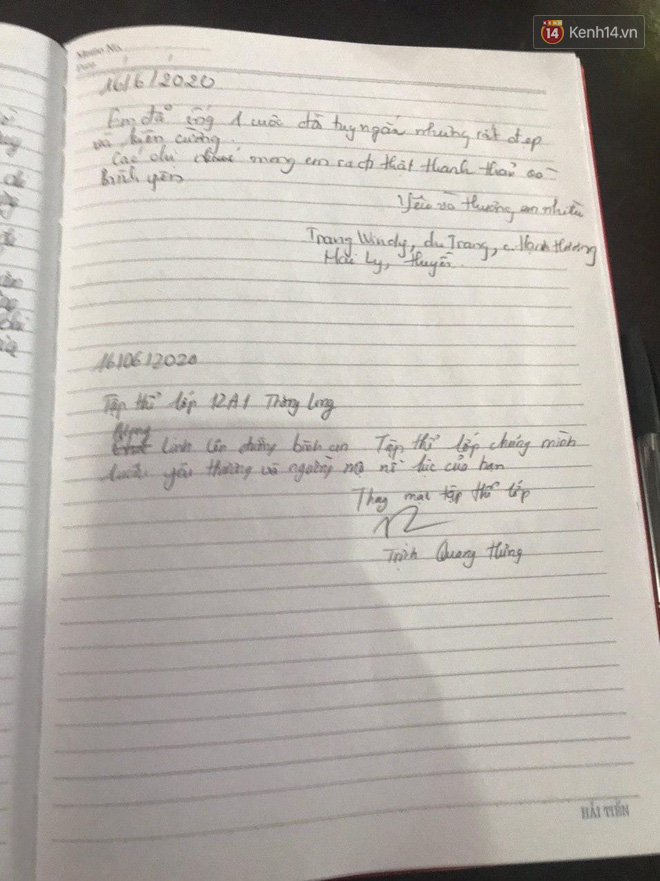 14 Kenh14.vn
Memo No.
Date
16/6/2020
Em đã sống 1 cuộc đời tuy ngắn nhưng rất đẹp
và kiên cường.
Các chị chúc mong em sạch thật thanh thản
Bình yên
Yêu và thương em nhiều
Trang Windy, du Trang, c Hạnh Hương
Mai Ly, Huyền.
16/06/2020
Tập thể lớp 12A1 Thăng Long
Linh lên đường bình an Tập thể lớp chúng mình
luôn yêu thương và ngưỡng mộ nỗ lực của bạn
Thay mặt tập thể lớp
Trịnh Quang Hưng
HẢI TIẾN